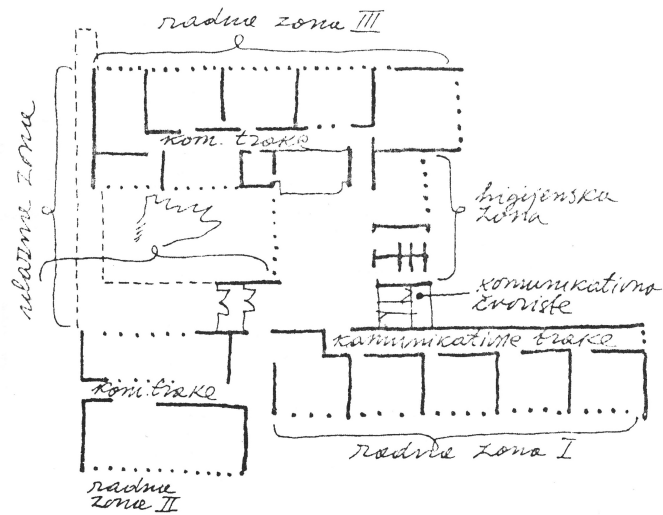 radne zona III
kom. trake
ulazne zona
higijenska
zona
komunikativno
čvoriste
kamunikativne trake
kom. trake
radne zona I
radne
zone II